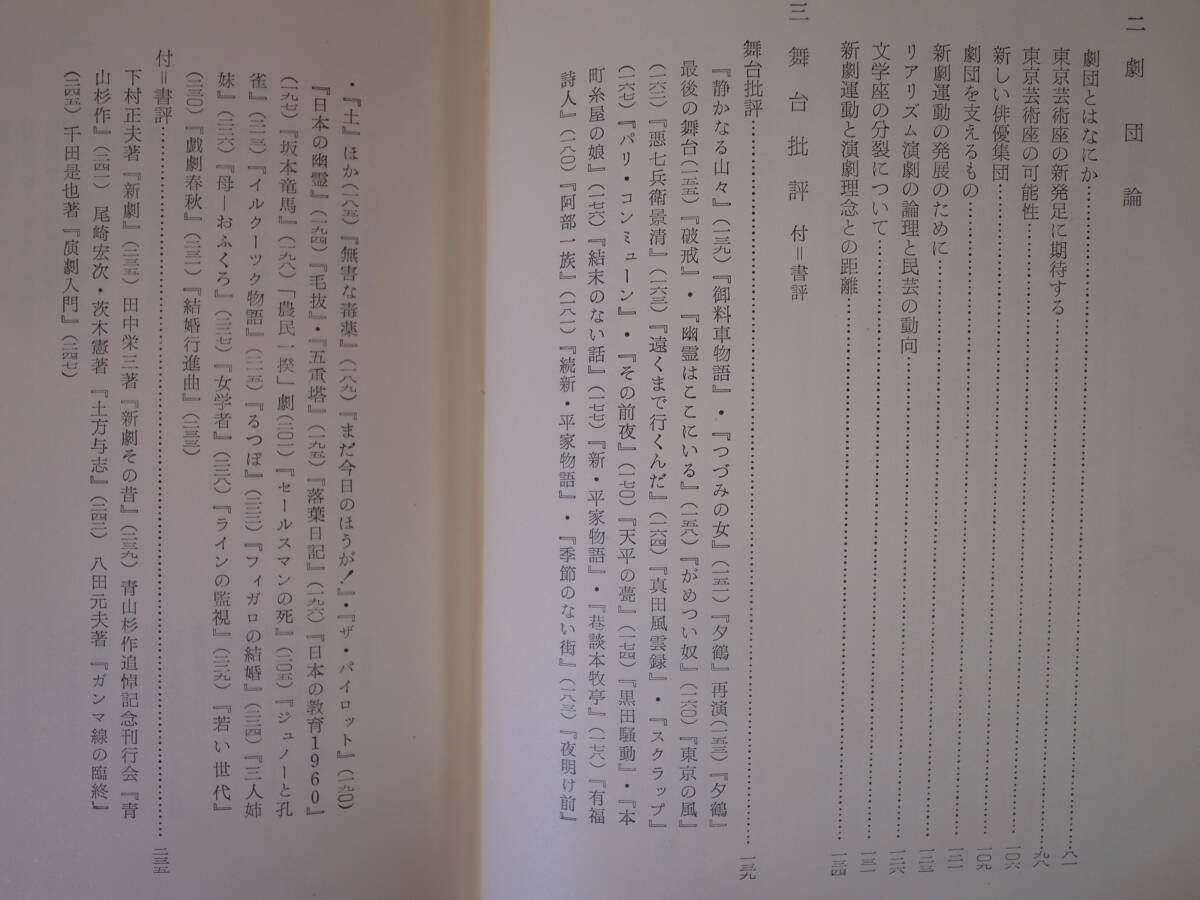 二 劇団論
劇団とはなにか……………………八一
東京芸術座の新発足に期待する……………………九八
東京芸術座の可能性……………………
新しい俳優集団……………………一〇六
劇団を支えるもの……………………一〇九
新劇運動の発展のために……………………一二一
リアリズム演劇の論理と民芸の動向……………………一二三
文学座の分裂について……………………一二六
新劇運動と演劇理念との距離……………………一三四
三 舞台批評 付＝書評
舞台批評……………………一三九
『静かなる山々』(一三九)『御料車物語』・『つづみの女』(一五一)『夕鶴』再演(一五三)『夕鶴』
最後の舞台(一五五)『破戒』・『幽霊はここにいる』(一五八)『がめつい奴』(一六〇)『東京の風』
(一六二)『悪七兵衛景清』(一六三)『遠くまで行くんだ』(一六四)『真田風雲録』・『スクラップ』
(一六七)『パリ・コンミューン』・『その前夜』(一七〇)『天平の甍』(一七四)『黒田騒動』・『本
町糸屋の娘』(一七六)『結末のない話』(一七七)『新・平家物語』・『巷談本牧亭』(一七八)『有福
詩人』(一八〇)『阿部一族』(一八一)『続新・平家物語』・『季節のない街』(一八三)『夜明け前』
・『土』ほか(一八五)『無害な毒薬』(一八九)『まだ今日のほうが！』・『ザ・パイロット』(一九〇)
『日本の幽霊』(一九四)『毛抜』・『五重塔』(一九五)『落葉日記』(一九六)『日本の教育1960』
(一九七)『坂本竜馬』(一九八)「農民一揆」劇(二〇一)『セールスマンの死』(二〇五)『ジュノーと孔
雀』(二一三)『イルクーツク物語』(二一五)『るつぼ』(二二三)『フィガロの結婚』(二二四)『三人姉
妹』(二二六)『母―おふくろ』(二二七)『女学者』(二二八)『ラインの監視』(二二九)『若い世代』
(二三〇)『戯劇春秋』(二三一)『結婚行進曲』(二三三)
付＝書評……………………二三五
下村正夫著『新劇』(二三五) 田中栄三著『新劇その昔』(二三九) 青山杉作追悼記念刊行会『青
山杉作』(二四一) 尾崎宏次・茨木憲著『土方与志』(二四二) 八田元夫著『ガンマ線の臨終』
(二四五) 千田是也著『演劇入門』(二四七)